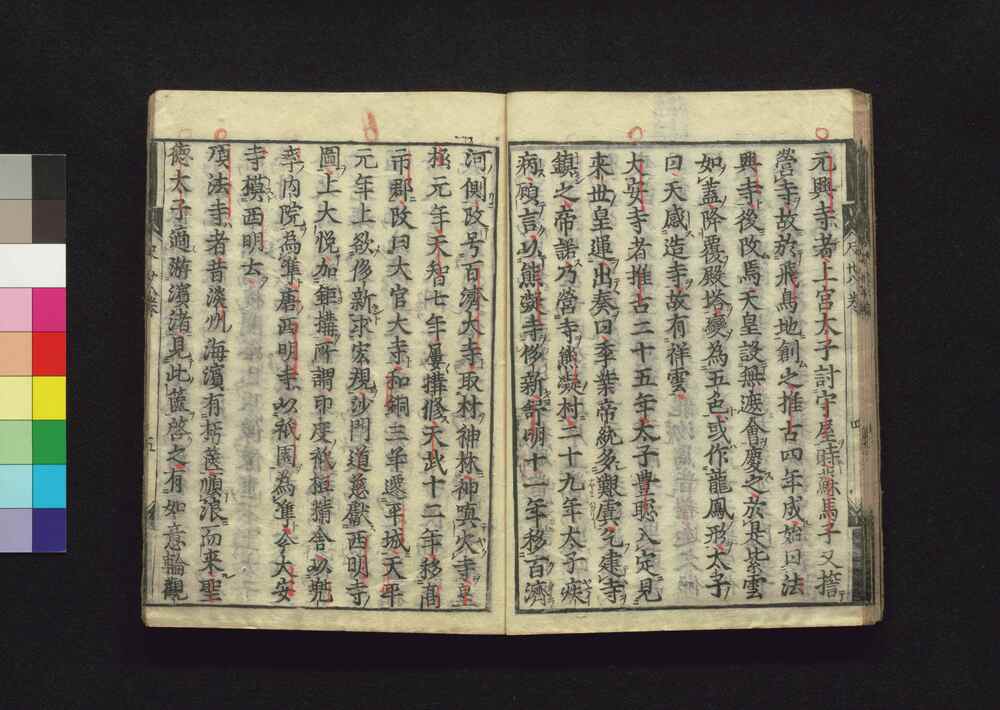 元興寺者上宮太子討守屋時蘇馬子又誓
營寺故於飛鳥地創之推古四年成始曰法
興寺後改焉天皇設無遮會慶之於是紫雲
如蓋降覆殿塔變為五色或作龍鳳形太子
曰天感造寺故有祥雲
大安寺者推古二十五年太子豊聡入定見
来世皇運出奏曰季葉帝統多艱虞乞建寺
鎮之帝諾乃営寺熊凝村二十九年太子疾
病顧言以熊凝寺俢新舒明十一年移百濟
河側改号百濟大寺取村神林神嗔火寺皇
極元年天智七年屢搆修天武十二年移高
市郡改曰大官大寺和銅三年遷平城天平
元年上欲俢新求宏規沙門道慈獻西明寺
圖上大悦加鉅搆所謂印度祇桓精舎以兜
率内院為準唐西明寺以祇園為準今大安
寺摸西明云
頂法寺者昔淡州海濱有朽舊順浪而來聖
徳太子適游濱渚見此篋啓之有如意輪觀
四
五